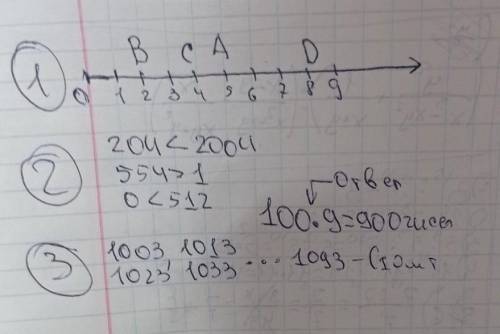 1
B C A D
0 1 2 3 4 5 6 7 8 9
2
204 < 2004
554 > 1
0 < 512
Ответ
100·9=900чисел
3
1003 1013
1023 1033 ... 1093 - (10шт